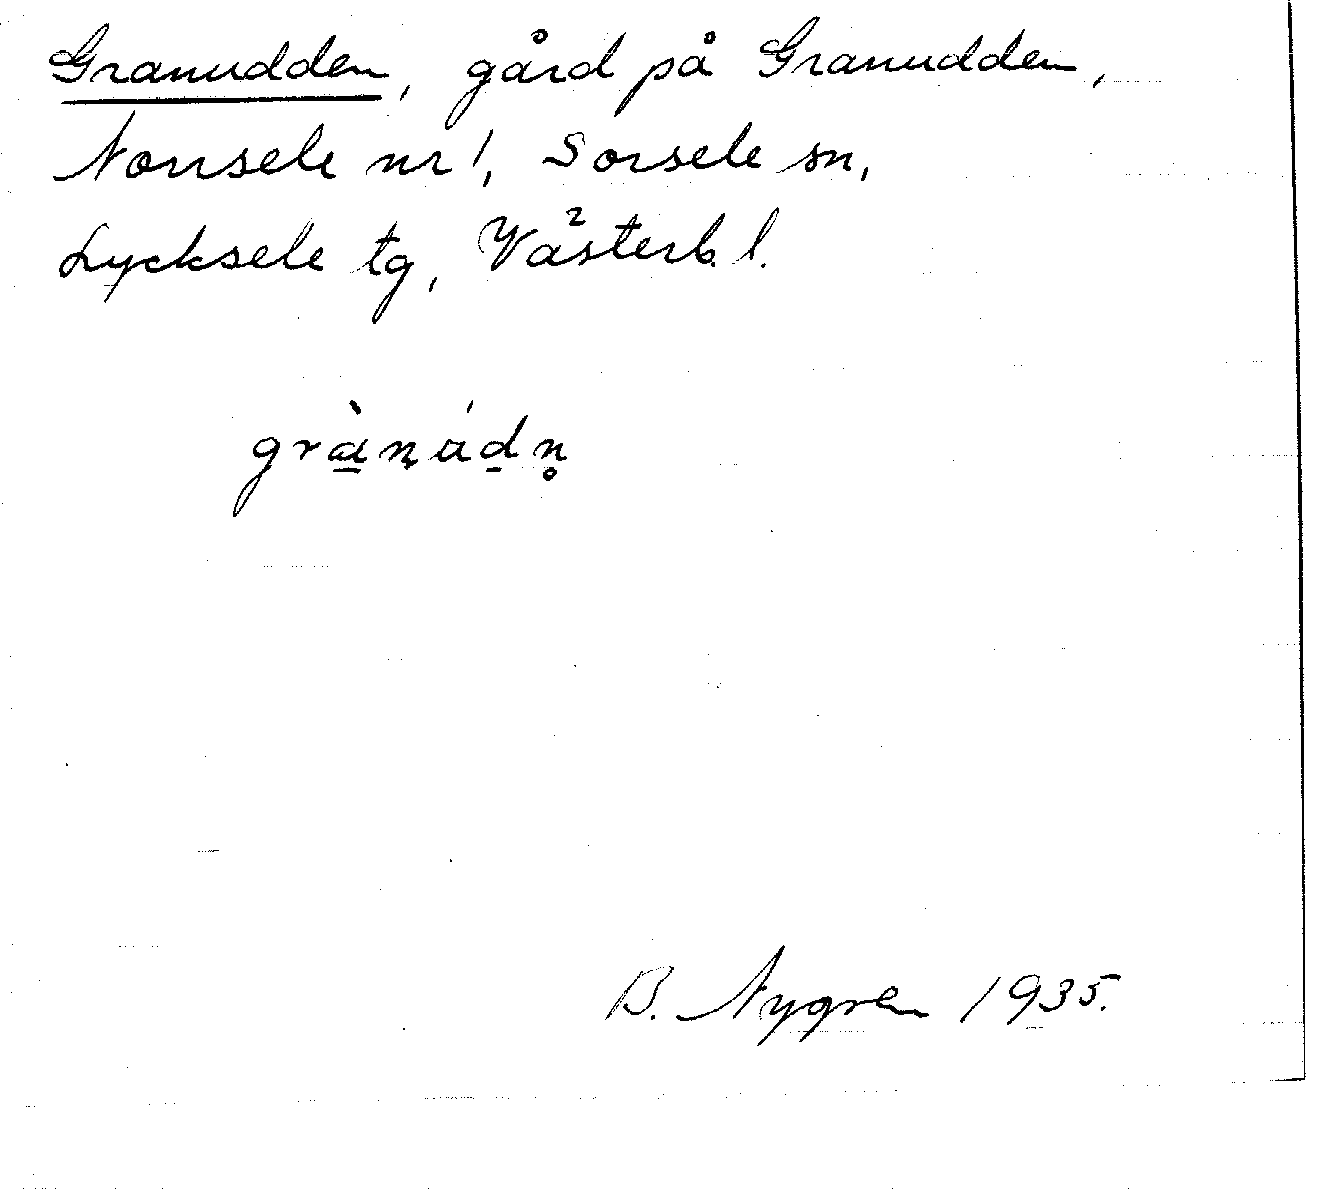 Granudden, gård på Granudden,
Nonsele nr 1, Sorsele sn,
Lycksele tg, Västerb. l.
gràṇádṇ̊
B. Nygren 1935.